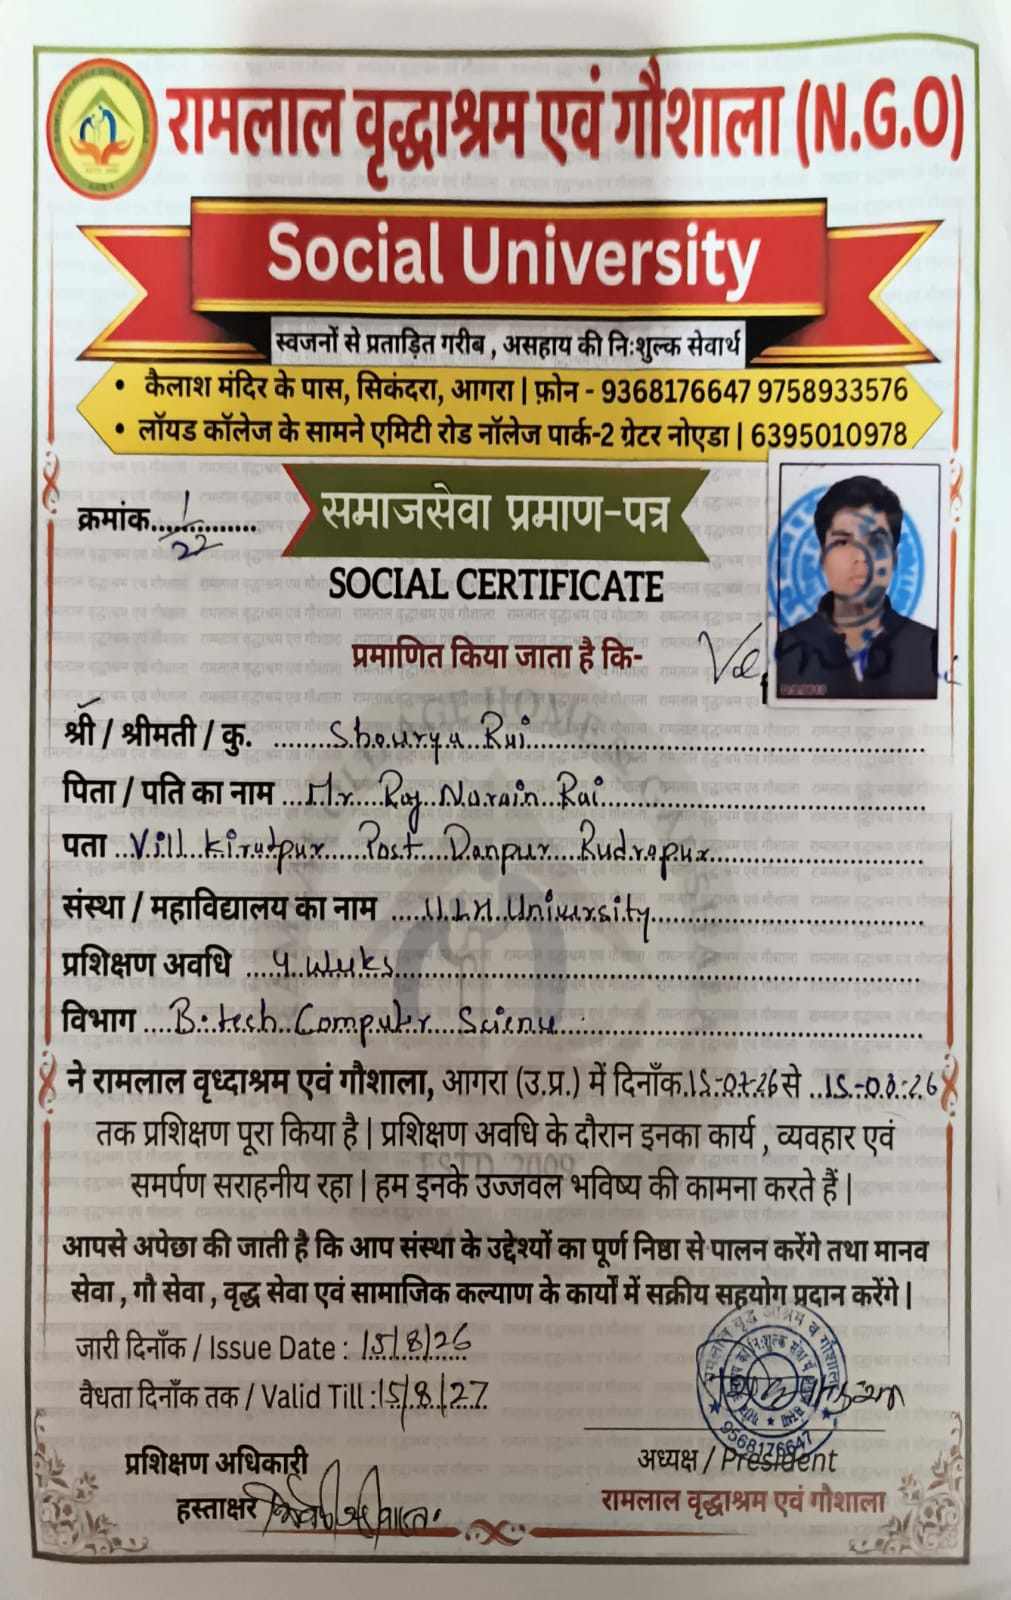 रामलाल वृद्धाश्रम एवं गौशाला (N.G.O)
Social University
स्वजनों से प्रताड़ित गरीब , असहाय की नि:शुल्क सेवार्थ
• कैलाश मंदिर के पास, सिकंदरा, आगरा | फ़ोन - 9368176647 9758933576
• लॉयड कॉलेज के सामने एमिटी रोड नॉलेज पार्क-2 ग्रेटर नोएडा | 6395010978
क्रमांक 1/22
समाजसेवा प्रमाण-पत्र
SOCIAL CERTIFICATE
प्रमाणित किया जाता है कि-
श्री / श्रीमती / कु. Shourya Rai
पिता / पति का नाम Mr. Raj Narain Rai
पता Vill Kiratpur Post Danpur Rudrapur
संस्था / महाविद्यालय का नाम University
प्रशिक्षण अवधि 4 weeks
विभाग B.tech Computer Science
ने रामलाल वृध्दाश्रम एवं गौशाला, आगरा (उ.प्र.) में दिनाँक 15-07-26 से 15-08-26
तक प्रशिक्षण पूरा किया है | प्रशिक्षण अवधि के दौरान इनका कार्य , व्यवहार एवं
समर्पण सराहनीय रहा | हम इनके उज्जवल भविष्य की कामना करते हैं |
आपसे अपेछा की जाती है कि आप संस्था के उद्देश्यों का पूर्ण निष्ठा से पालन करेंगे तथा मानव
सेवा , गौ सेवा , वृद्ध सेवा एवं सामाजिक कल्याण के कार्यों में सक्रीय सहयोग प्रदान करेंगे |
जारी दिनाँक / Issue Date : 15/8/26
वैधता दिनाँक तक / Valid Till : 15/8/27
प्रशिक्षण अधिकारी
हस्ताक्षर
9568176647
अध्यक्ष / President
रामलाल वृद्धाश्रम एवं गौशाला